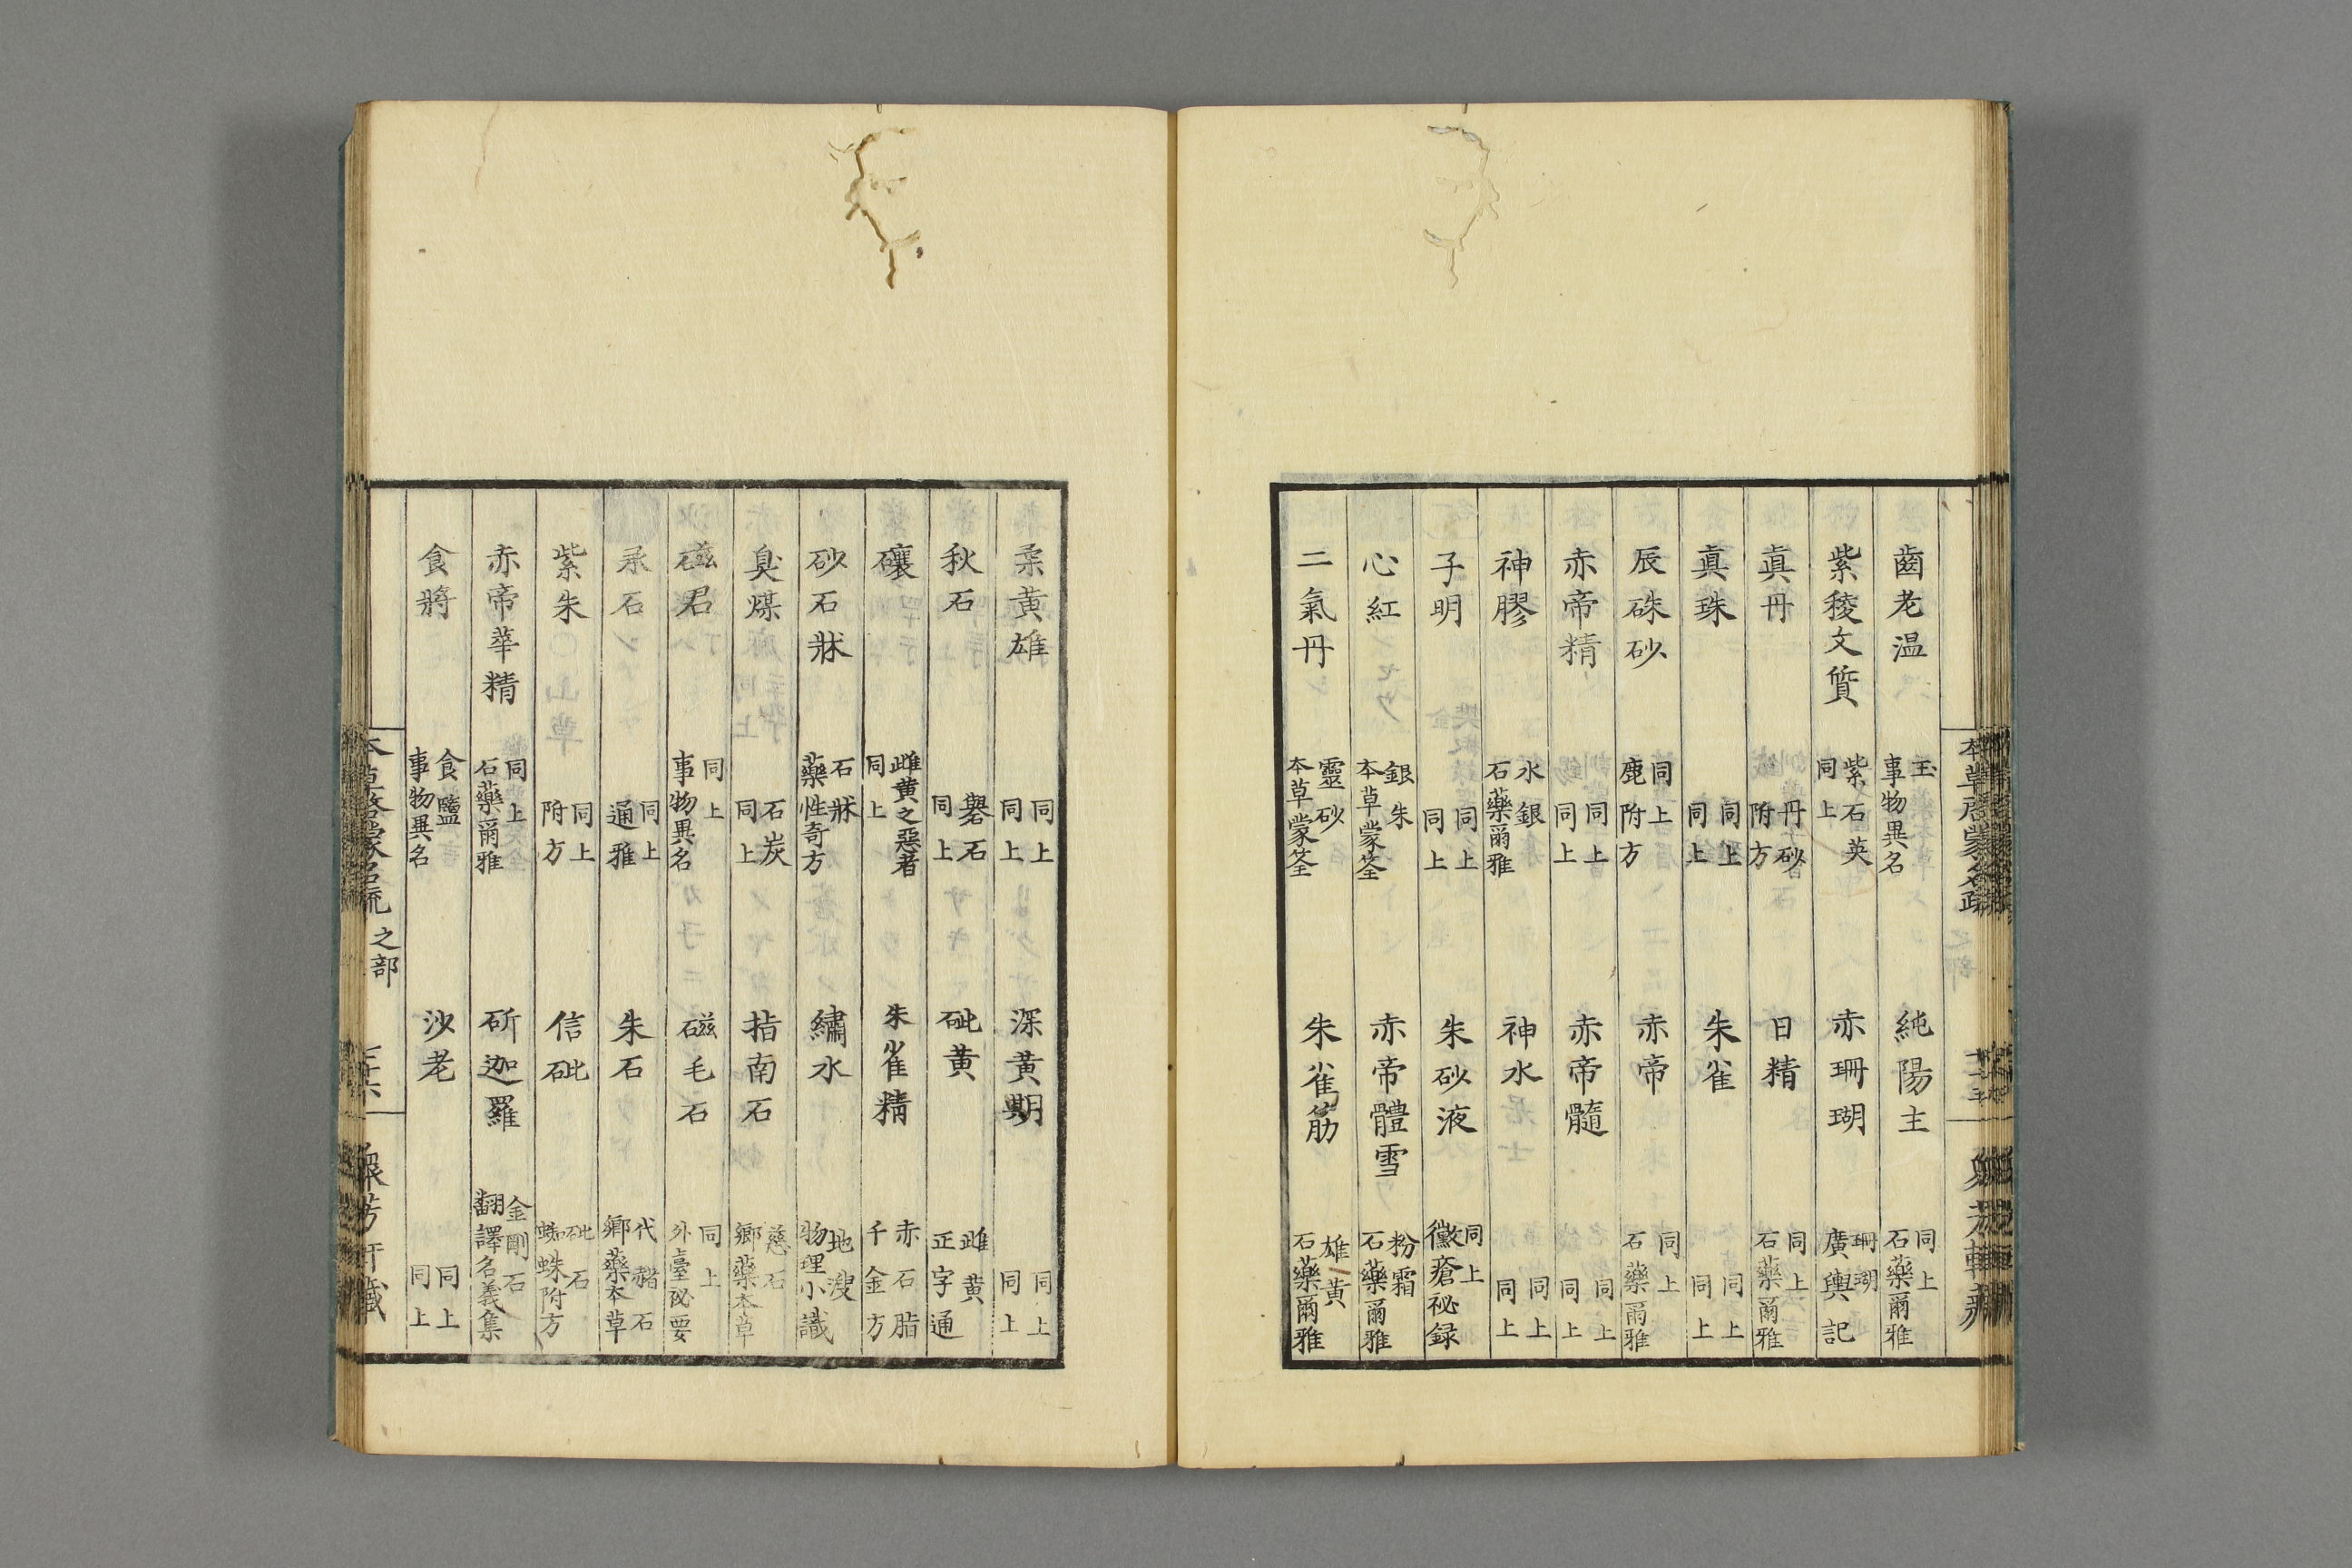 齒老温 玉 事物異名 純陽主 同上 石藥爾雅
紫稜文質 紫石英 同上 赤珊瑚 珊瑚 廣輿記
眞丹 丹砂 附方 日精 同上 石藥爾雅
眞珠 同上 同上 朱雀 同上 同上
辰硃砂 同上 鹿附方 赤帝 同上 石藥爾雅
赤帝精 同上 同上 赤帝髓 同上 同上
神膠 水銀 石藥爾雅 神水 同上 同上
子明 同上 同上 朱砂液 同上 黴瘡祕録
心紅 銀朱 本草蒙筌 赤帝體雪 粉霜 石藥爾雅
二氣丹 靈砂 本草蒙筌 朱雀筋 雄黃 石藥爾雅
柔黃雄 同上 同上 深黃期 同上 同上
秋石 礜石 同上 砒黃 雌黃 正字通
礦 雌黃之惡者 同上 朱雀精 赤石脂 千金方
砂石牀 石牀 藥性奇方 繡水 地溲 物理小識
臭煤 石炭 同上 指南石 慈石 鄉藥本草
磁君 同上 事物異名 磁毛石 同上 外臺祕要
承石 同上 通雅 朱石 代赭石 鄉藥本草
紫朱 同上 附方 信砒 砒石 蜘蛛附方
赤帝華精 同上 石藥爾雅 斫迦羅 金剛石 翻譯名義集
食將 食鹽 事物異名 沙老 同上 同上
本草啓蒙名疏 之部